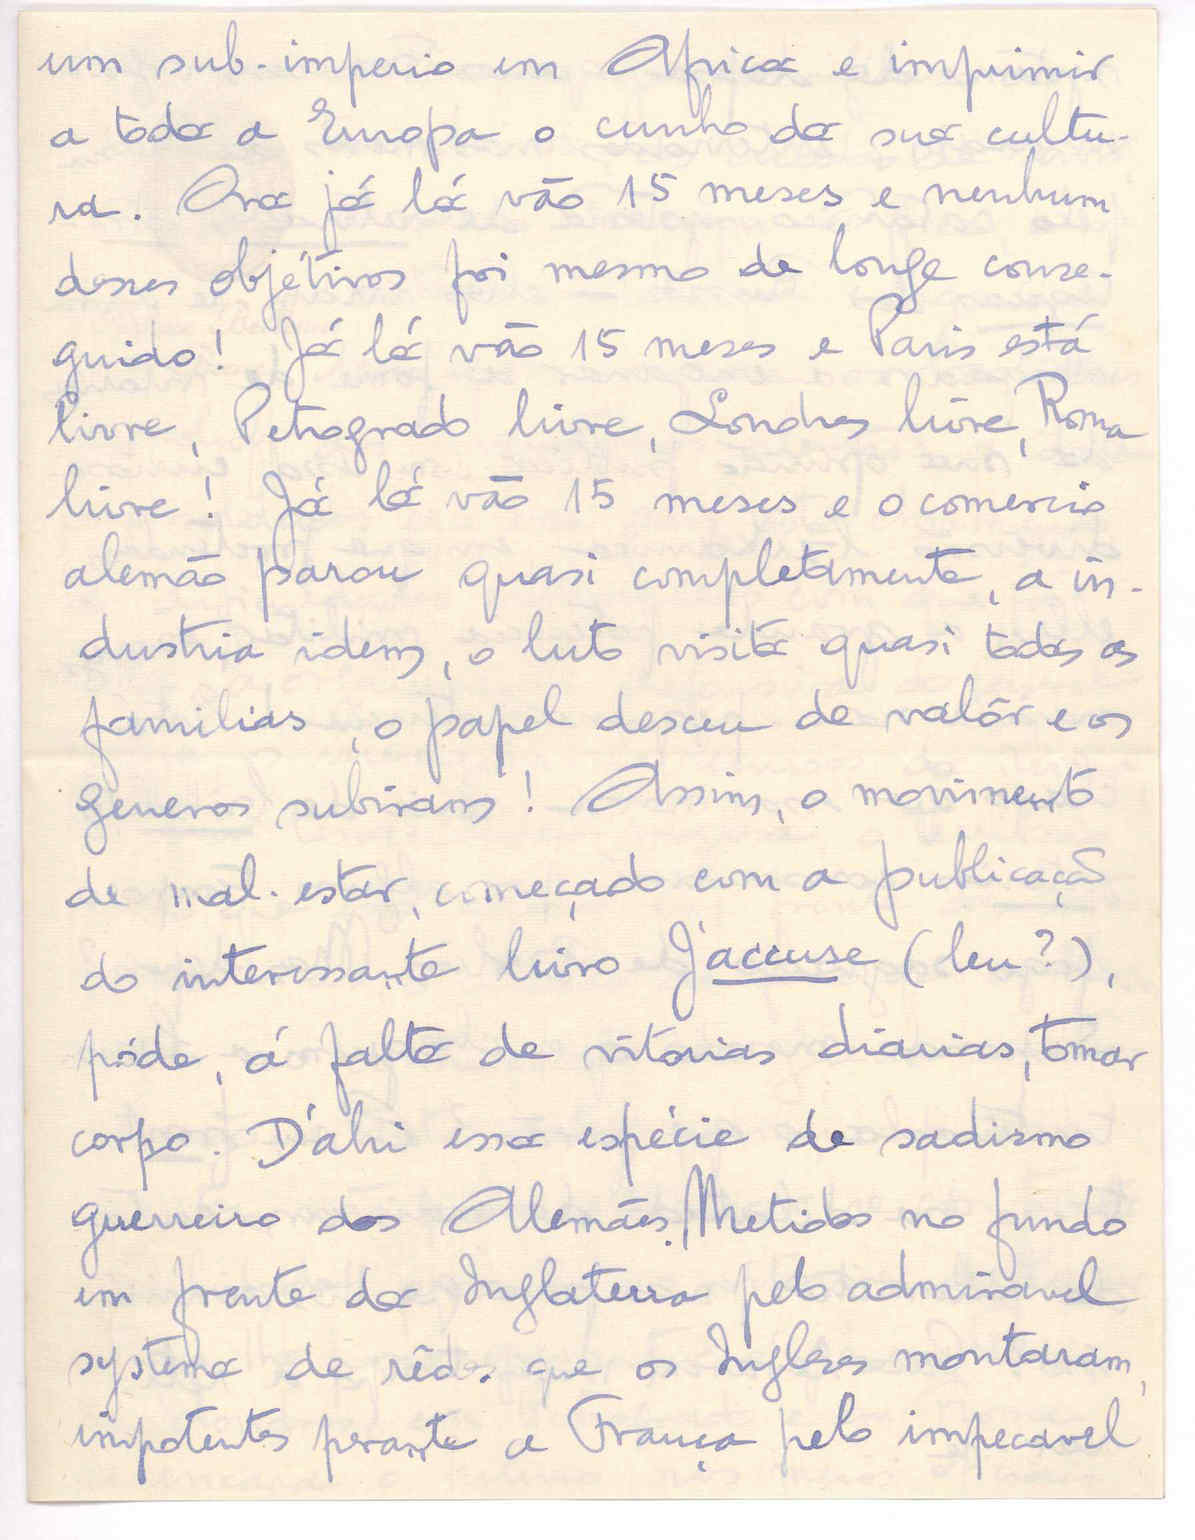 um sub-imperio em Africa e imprimir
a toda a Europa o cunho da sua cultu-
ra. Ora já lá vão 15 meses e nenhum
desses objétivos foi mesmo de longe conse-
guido! Já lá vão 15 meses e Paris está
livre, Petrogrado livre, Londres livre, Roma
livre! Já lá vão 15 meses e o comercio
alemão parou quasi completamente, a in-
dustria idem, o luto visita quasi todas as
familias, o papel desceu de valôr e os
generos subiram! Assim, o movimento
de mal-estar, começado com a publicação
do interessante livro J'accuse (leu?),
póde, á falta de vitorias diarias, tomar
corpo. D'ahi essa espécie de sadismo
guerreiro dos Alemães. Metidos no fundo
em frente da Inglaterra pelo admiravel
systema de rêdes que os Ingleses montaram,
impotentes perante a França pelo impecavel